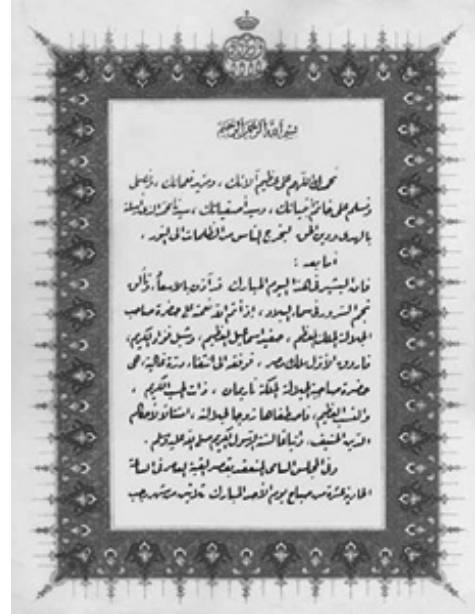 بسم الله الرحمن الرحيم
نحمدك اللهم على عظيم آلائك ، ومزيد نعمائك ، ونصلى
ونسلم على خاتم أنبيائك ، وسيد أصفيائك ، سيدنا محمد الذى أرسلته
بالهدى ودين الحق ليخرج الناس من الظلمات الى النور .
أما بعد :
فإن البشير فى هذا اليوم المبارك قد أذن بالإسعاد وتألق
نجم السرور فى سماء البلاد ، إذ أتم الله نعمته على حضرة صاحب
الجلالة الملك المعظم ، حفيد اسماعيل العظيم ، وشبل فؤاد الكريم ،
فاروق الأول ملك مصر ، فوفقه الى انتقاء درة غالية ، هى
حضرة صاحبة الجلالة الملكة ناريمان ، ذات الحسب الكريم ،
والنسب العظيم ، فاصطفاها زوجا لجلالته ، امتثالا لأحكام
الدين الحنيف ، واتباعا لسنة الرسول الكريم صلى الله عليه وسلم .
وفى المجلس السامى المنعقد بقصر القبة العامر فى الساعة
الحادية عشرة من صباح يوم الأحد المبارك ثلاثين من شهر رجب